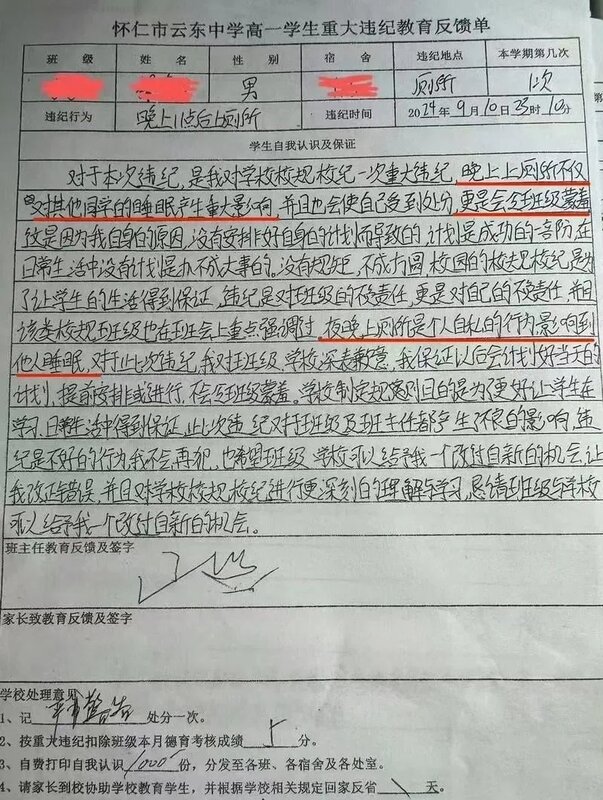 怀仁市云东中学高一学生重大违纪教育反馈单
班 级 姓 名 性 别 宿 舍 违纪地点 本学期第几次
男 厕所 1次
违纪行为 晚上11点后上厕所 违纪时间 2024年9月10日23时10分
学生自我认识及保证
对于本次违纪，是我对学校校规校纪一次重大违纪，晚上上厕所不仅
对其他同学的睡眠产生重大影响，并且也会使自己受到处分，更是会给班级蒙羞
这是因为我自身的原因，没有安排好自身的计划而导致的，计划是成功的音阶，在
日常生活中没有计划是办不成大事的。没有规矩，不成方圆，校园的校规校纪是为
了让学生的生活得到保证，违纪是对班级的不负责任，更是对自己的不负责任，并且
该类校规班级也在班会上重点强调过，夜晚上厕所是个人自私的行为影响到
他人睡眠，对于此次违纪，我对班级、学校深表歉意，我保证以后会计划好当天的
计划，提前安排或进行，不会给班级蒙羞。学校制定规章则目的是为更好让学生在
学习、日常生活中得到保证，此次违纪对于班级及班主任都产生了不良的影响，违
纪是不好的行为，我不会再犯，也希望班级、学校可以给予我一个改过自新的机会，让
我改正错误，并且对学校校规校纪进行更深刻的理解与学习，恳请班级与学校
可以给予我一个改过自新的机会。
班主任教育反馈及签字
家长致教育反馈及签字
学校处理意见
1、记 严重警告 处分一次。
2、按重大违纪扣除班级本月德育考核成绩 5 分。
3、自费打印自我认识 1000 份，分发至各班、各宿舍及各处室。
4、请家长到校协助学校教育学生，并根据学校相关规定回家反省 \ 天。